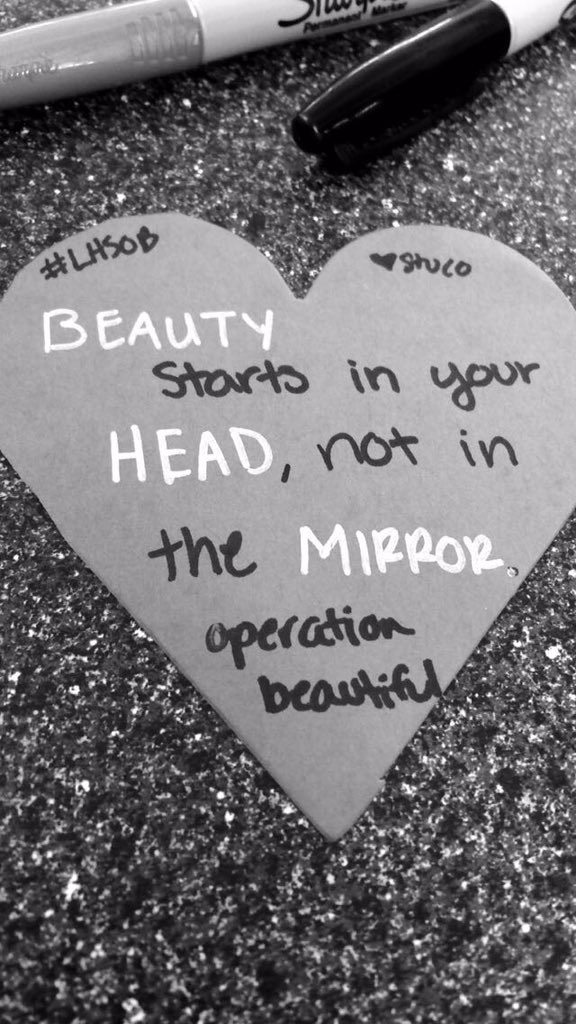 Sharpie
Permanent Marker
#LHSOB
♥StUCO
BEAUTY
Starts in your
HEAD, not in
the MIRROR.
operation
beautiful